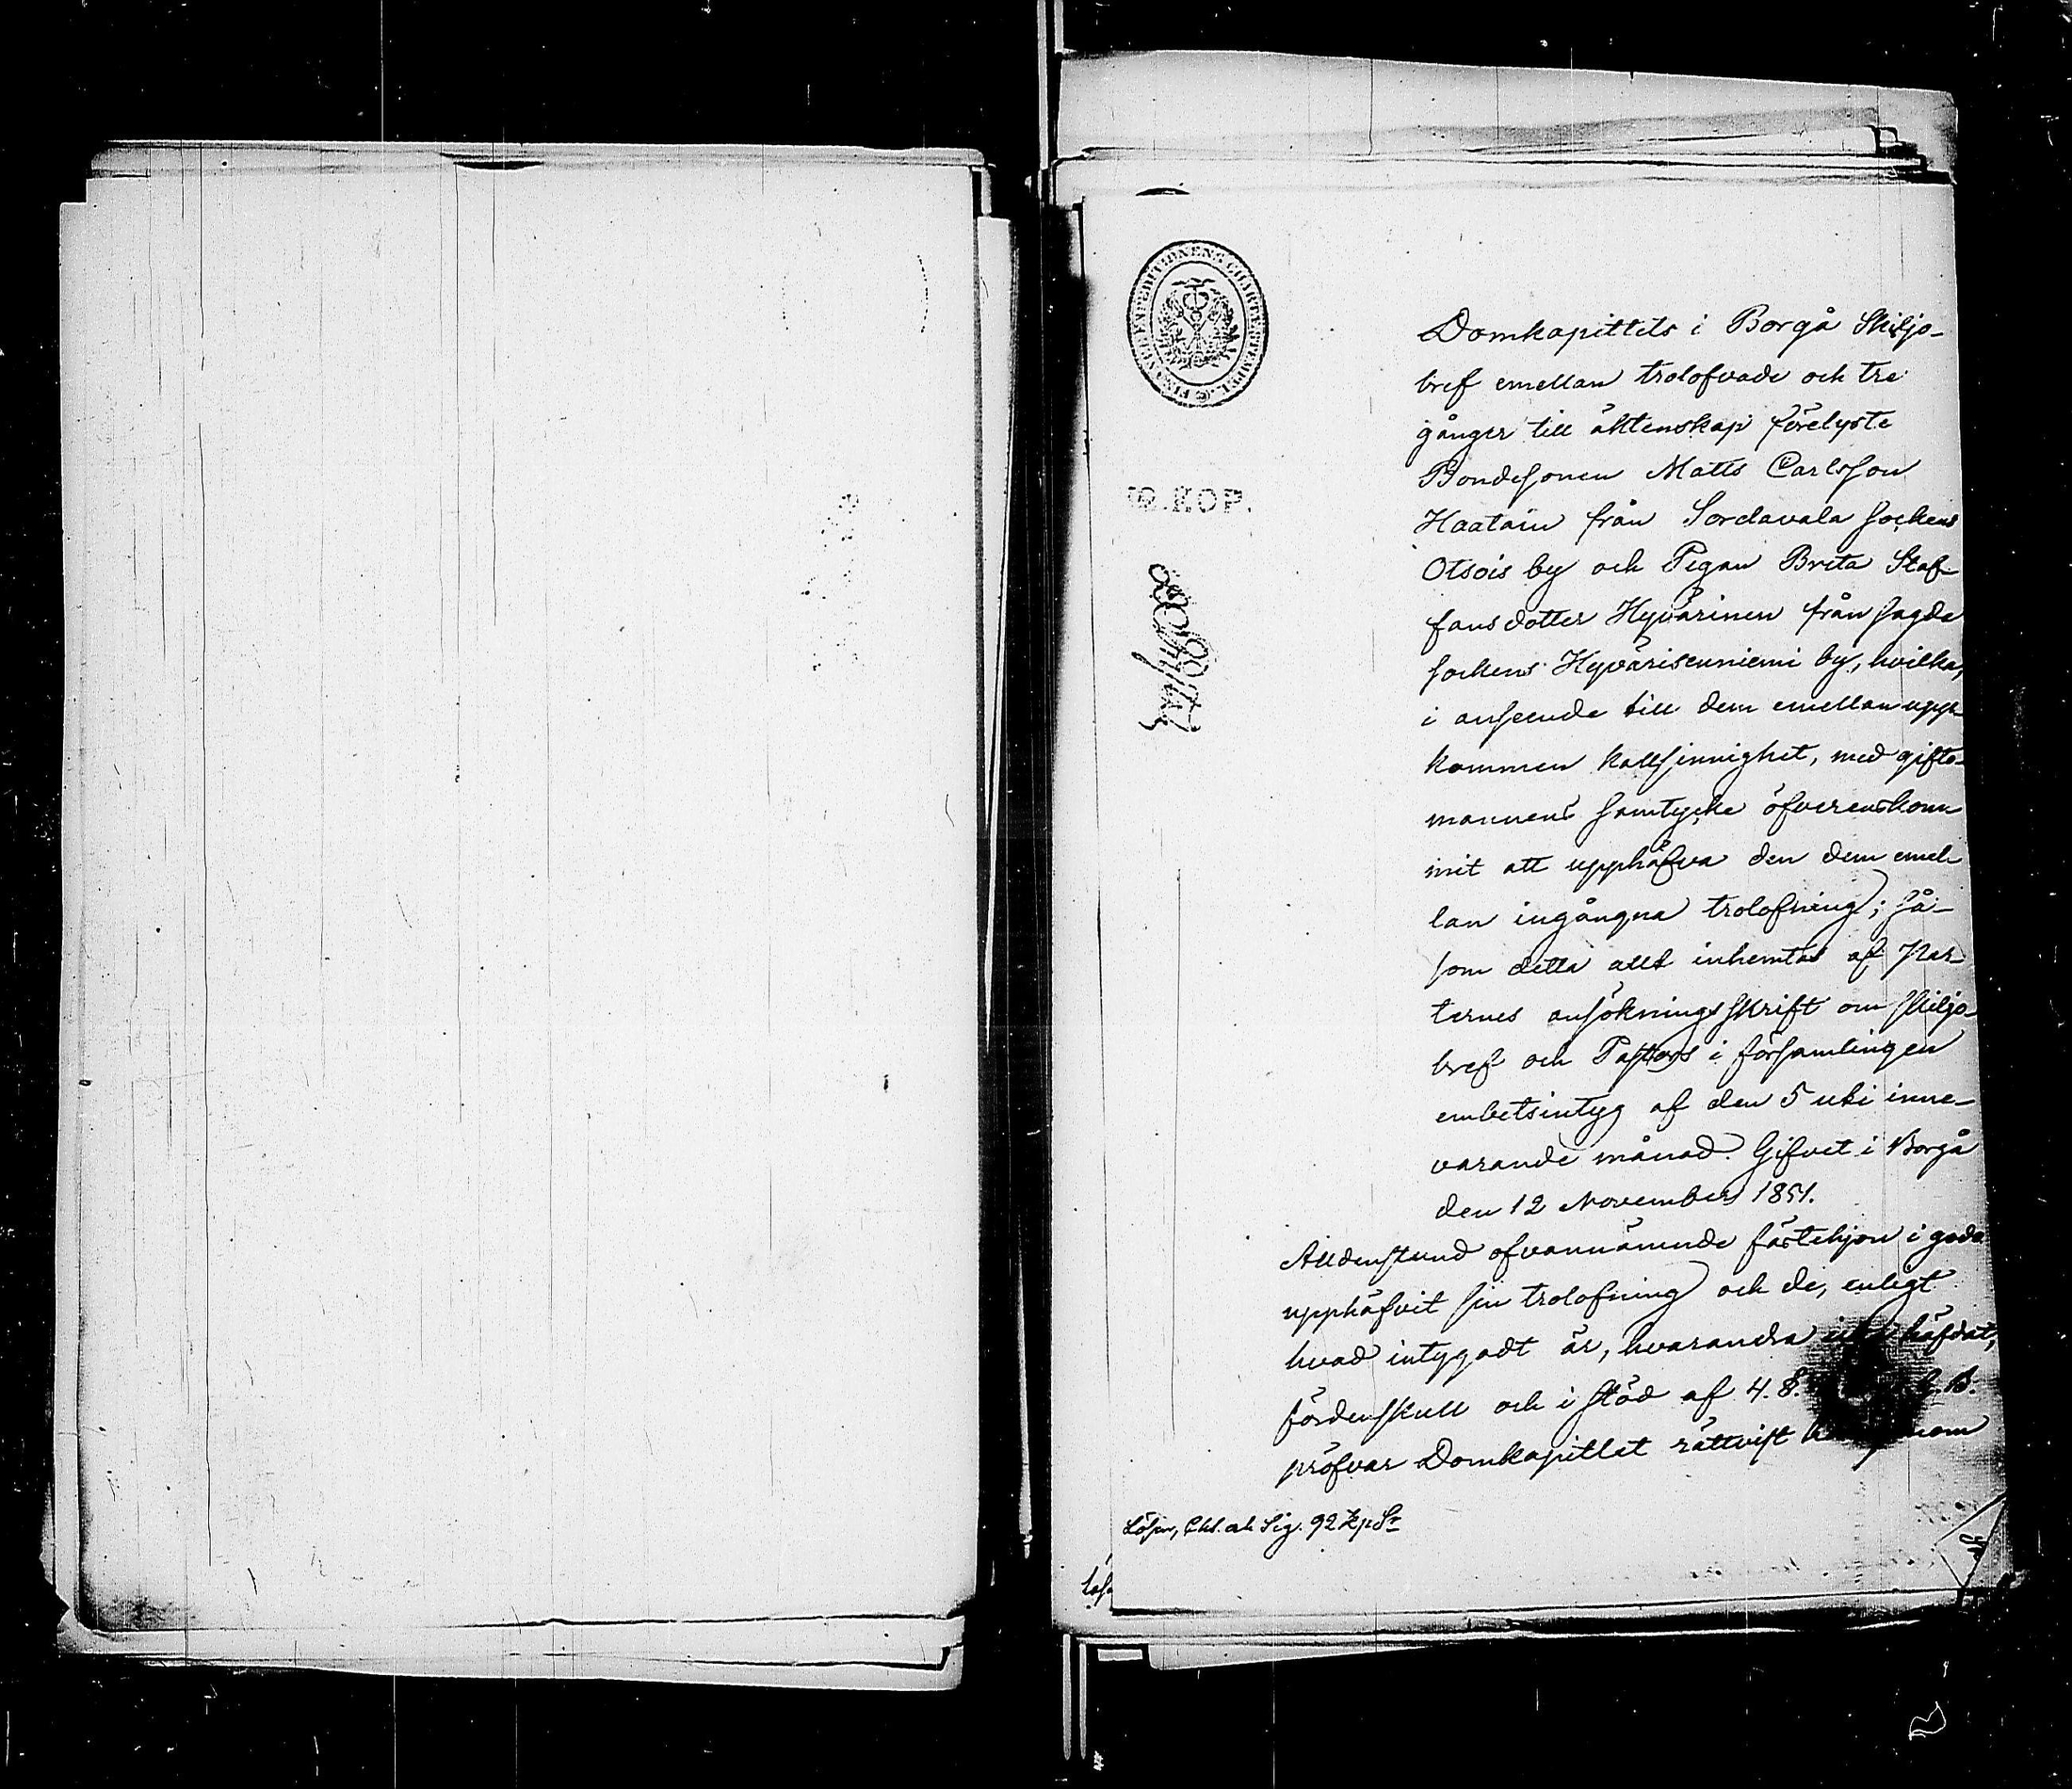 FINANCE EXPEDITIONENS CHARTÆ STEMPEL
KOP.
Domkapitlets i Borgå Skiljo-
bref emellan trolofvade och tre
gånger till äktenskap förelyste
Bondesonen Matts Carlsson
Haatain från Sordavala Sockens
Otsois by och Pigan Brita Staf-
fansdotter Hyvärinen från sagde
sockens Hyvärisenniemi by, hvilka,
i anseende till dem emellan upp-
kommen kallsinnighet, med gifto-
mannens samtycke öfverenskom-
mit att upphäfva den dem emel-
lan ingångna trolofning; så-
som detta allt inhemtas af Par-
ternes ansökningsskrift om skiljo-
bref och Pastors i församlingen
embetsintyg af den 5 uti inne-
varande månad. Gifvet i Borgå
den 12 November 1851.
Alldenstund ofvannämnde fästehjon i godo
upphäfvit sin trolofning och de, enligt
hvad intygadt är, hvarandra icke häfdat,
fördenskull och i stöd af 4. §. G. B.
pröfvar Domkapitlet rättvist
Lösen, Chl. och Sig. 92 kp Sr